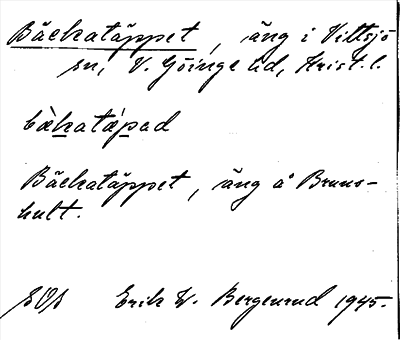 Bäckatäppet, äng i Vittsjö
sn, V. Göinge hd, Krist. l.
bàkatápad
Bäckatäppet, äng å Bruns-
hult.
Erik W. Bergenrud 1945.